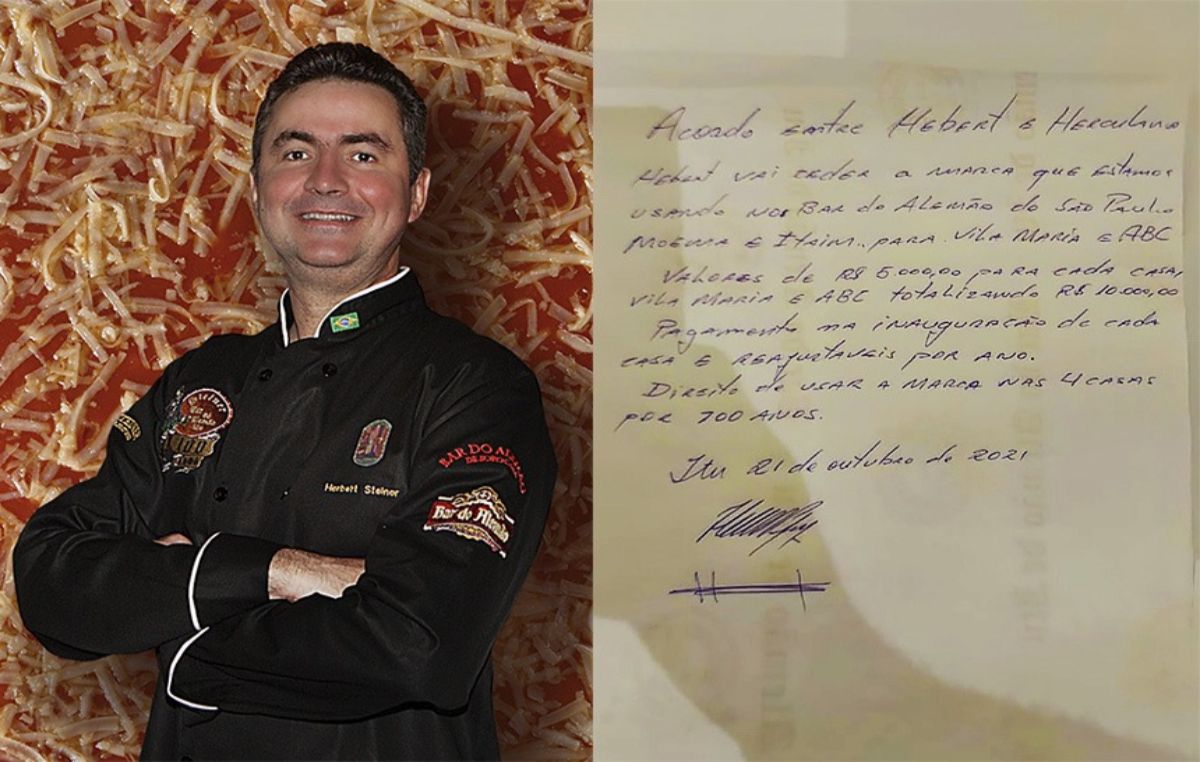 100
Herbert Steiner
BAR DO ALEMÃO
Bar do Alemão
Acordo entre Hebert e Herculano
Hebert vai ceder a marca que estamos
usando nos Bar do Alemão do São Paulo
Moema e Itaim. para Vila Maria e ABC
Valores de R$ 5.000,00 para cada casa,
Vila Maria e ABC totalizando R$ 10.000,00
Pagamento na inauguração de cada
casa e reajustaveis por ano.
Direito de usar a marca nas 4 casas
por 700 anos.
Itu 21 de outubro de 2021